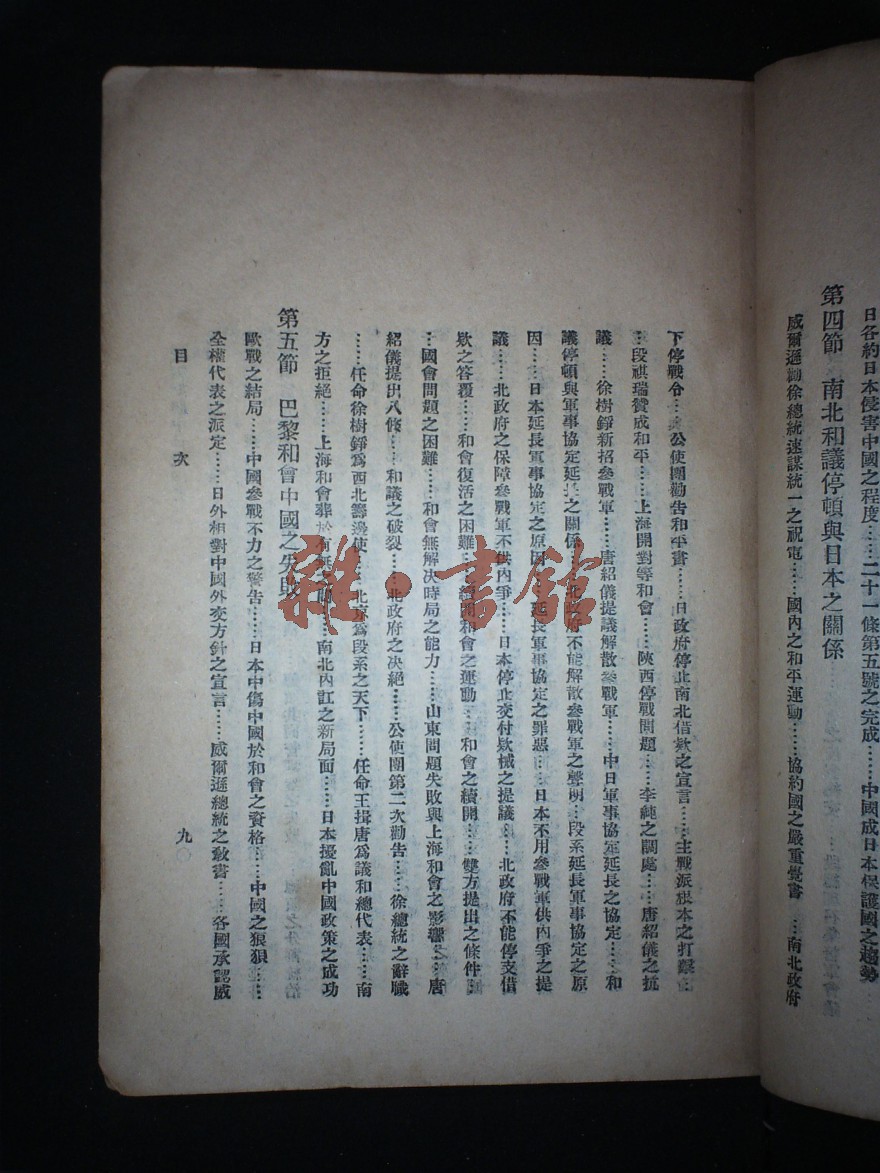 日各約日本侵害中國之程度……二十一條第五號之完成……中國成日本保護國之趨勢
第四節 南北和議停頓與日本之關係
威爾遜勸徐總統速謀統一之祝電……國內之和平運動……協約國之嚴重覺書…南北政府
下停戰令……公使團勸告和平書……日政府停止南北借款之宣言……主戰派根本之打擊…
…段祺瑞贊成和平……上海開對等和會……陝西停戰問題……李純之調處……唐紹儀之抗
議……徐樹錚新招參戰軍……唐紹儀提議解散參戰軍……中日軍事協定延長之協定……和
議停頓與軍事協定延長之關係……北政府不能解散參戰軍之聲明…段系延長軍事協定之原
因……日本延長軍事協定之原因……延長軍事協定之罪惡……日本不用參戰軍供內爭之提
議……北政府之保障參戰軍不供內爭……日本停止交付欵械之提議……北政府不能停支借
欵之答覆……和會復活之困難…續開和會之運動……和會之續開……雙方提出之條件…
…國會問題之困難……和會無解決時局之能力……山東問題失敗與上海和會之影響……唐
紹儀提出八條……和議之破裂……北政府之決絕……公使團第二次勸告……徐總統之辭職
……任命徐樹錚爲西北籌邊使……北京爲段系之天下……任命王揖唐爲議和總代表……南
方之拒絕……上海和會葬於有無之間……南北內訌之新局面……日本擾亂中國政策之成功
第五節 巴黎和會中國之失敗
歐戰之結局……中國參戰不力之警告……日本中傷中國於和會之資格……中國之狼狽……
全權代表之派定……日外相對中國外交方針之宣言……威爾遜總統之敎書……各國承認威
目 次 九
雜·書館